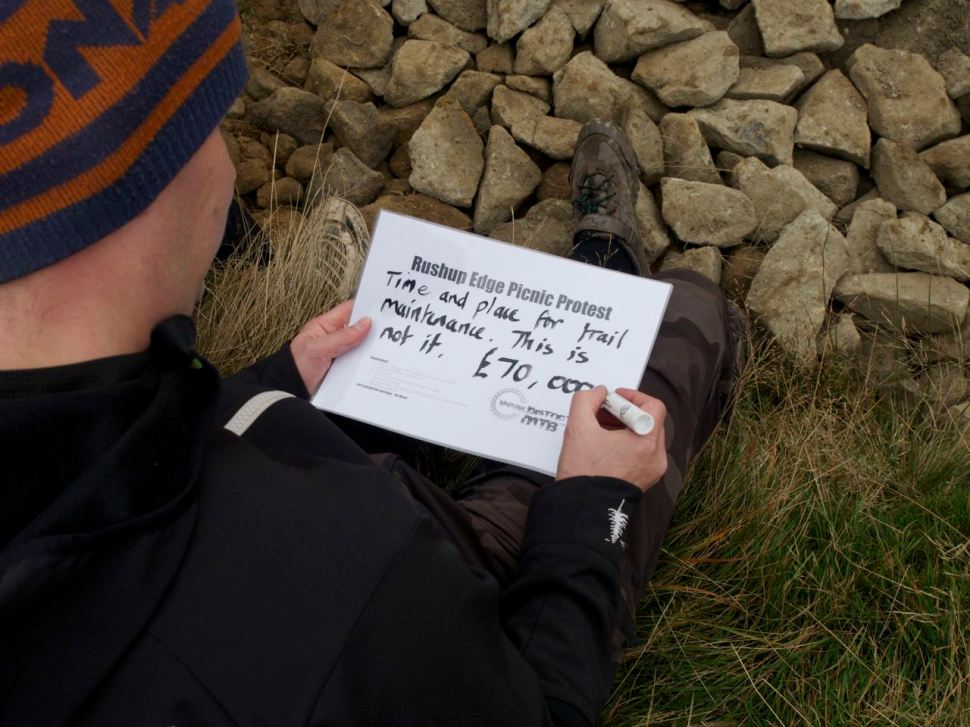 ONA
ON
Rushup Edge Picnic Protest
Time and place for trail
maintenance. This is
not it.
£70,000
PEAK DISTRICT
MTB